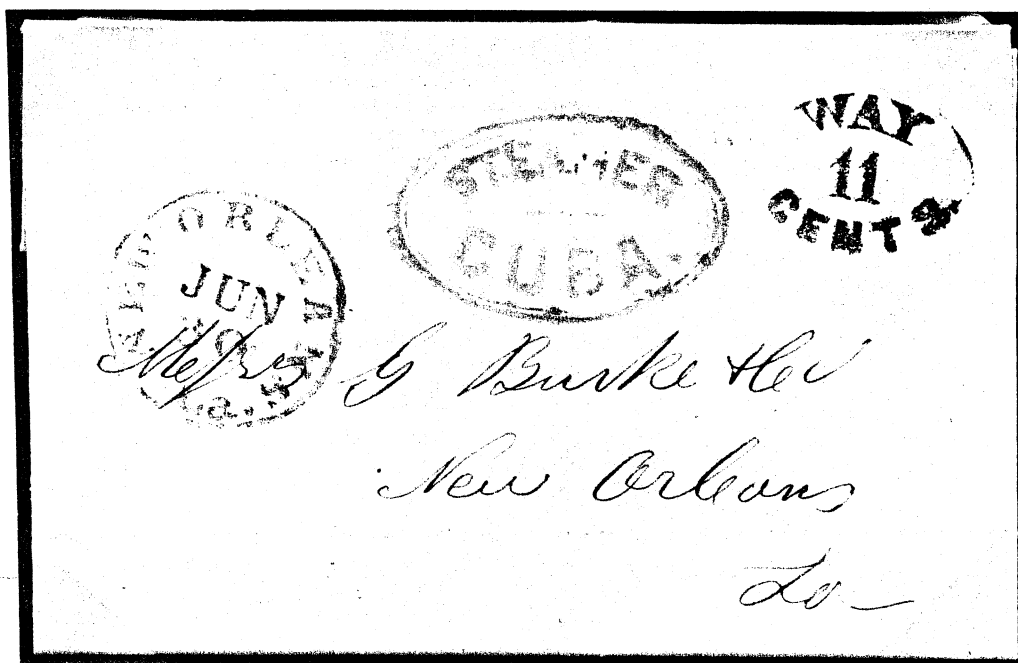 WAY
11
CENTS
STEAMER
CUBA.
NEW ORLEANS
JUN
La.
Messrs G Burke & Co
New Orleans
La